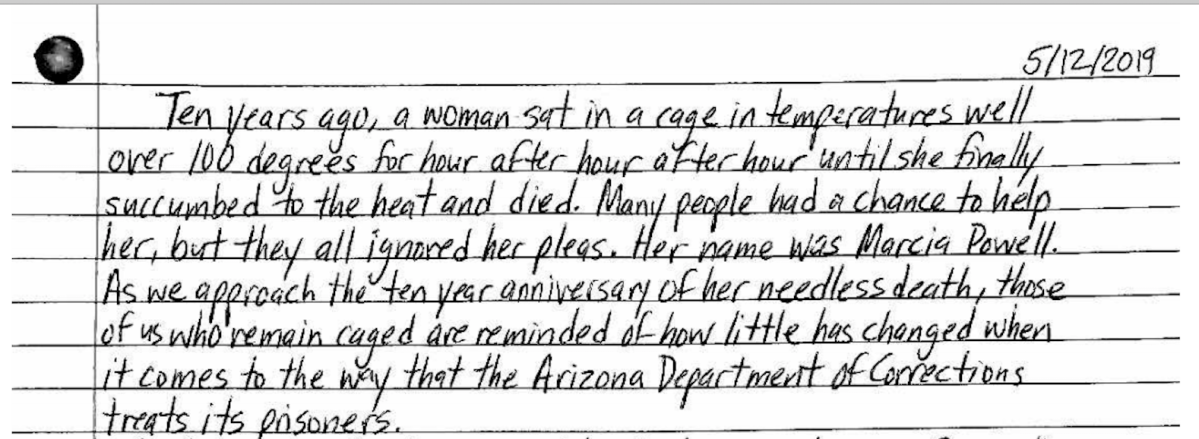 5/12/2019
Ten years ago, a woman sat in a cage in temperatures well
over 100 degrees for hour after hour after hour until she finally
succumbed to the heat and died. Many people had a chance to help
her, but they all ignored her pleas. Her name was Marcia Powell.
As we approach the ten year anniversary of her needless death, those
of us who remain caged are reminded of how little has changed when
it comes to the way that the Arizona Department of Corrections
treats its prisoners.